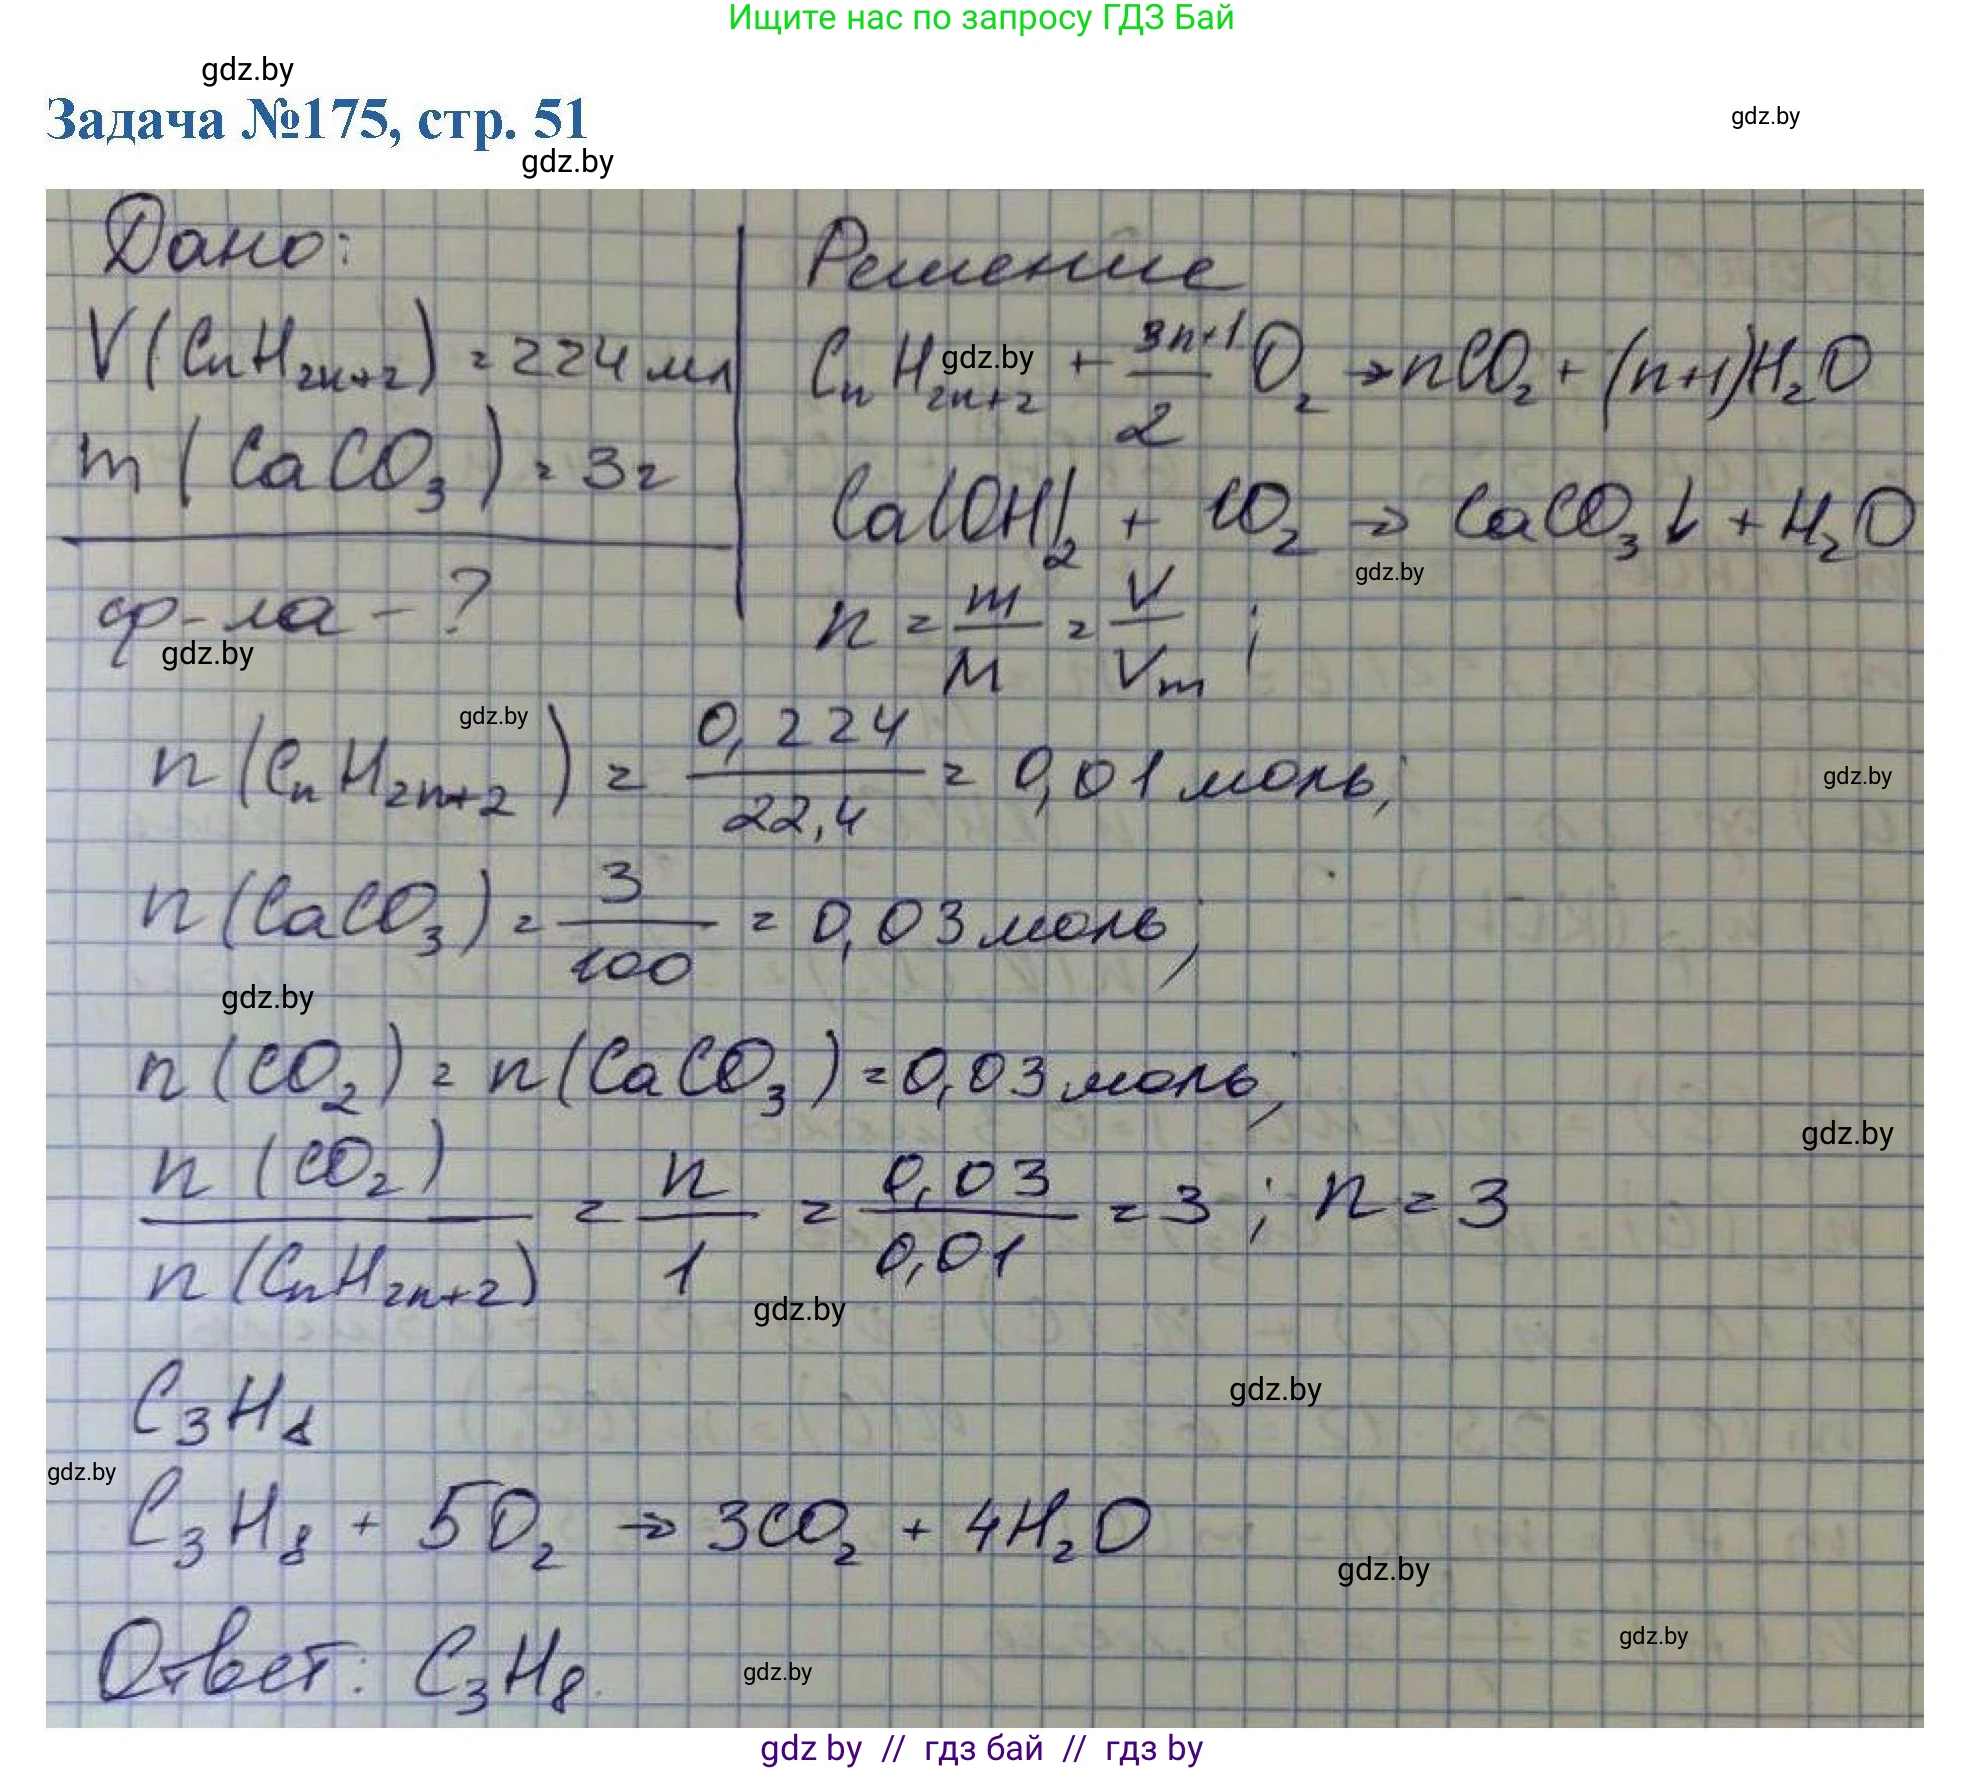 Ищите нас по запросу ГДЗ Бай
gdz.by
Задача №175, стр. 51
gdz.by
gdz.by
Дано:
V(CnH2n+2) = 224 мл
m(CaCO3) = 3г
ф-ла - ?
gdz.by
Решение
CnH2n+2 + 3n+1/2 O2 → nCO2 + (n+1)H2O
gdz.by
Ca(OH)2 + CO2 → CaCO3↓ + H2O
gdz.by
n = m/M = V/Vm ;
gdz.by
n(CnH2n+2) = 0,224/22,4 = 0,01 моль;
gdz.by
n(CaCO3) = 3/100 = 0,03 моль;
gdz.by
n(CO2) = n(CaCO3) = 0,03 моль;
gdz.by
n(CO2)/n(CnH2n+2) = n/1 = 0,03/0,01 = 3 ; n = 3
gdz.by
C3H8
gdz.by
gdz.by
C3H8 + 5O2 → 3CO2 + 4H2O
gdz.by
Ответ: C3H8.
gdz.by
gdz.by
gdz by // гдз бай // гдз by